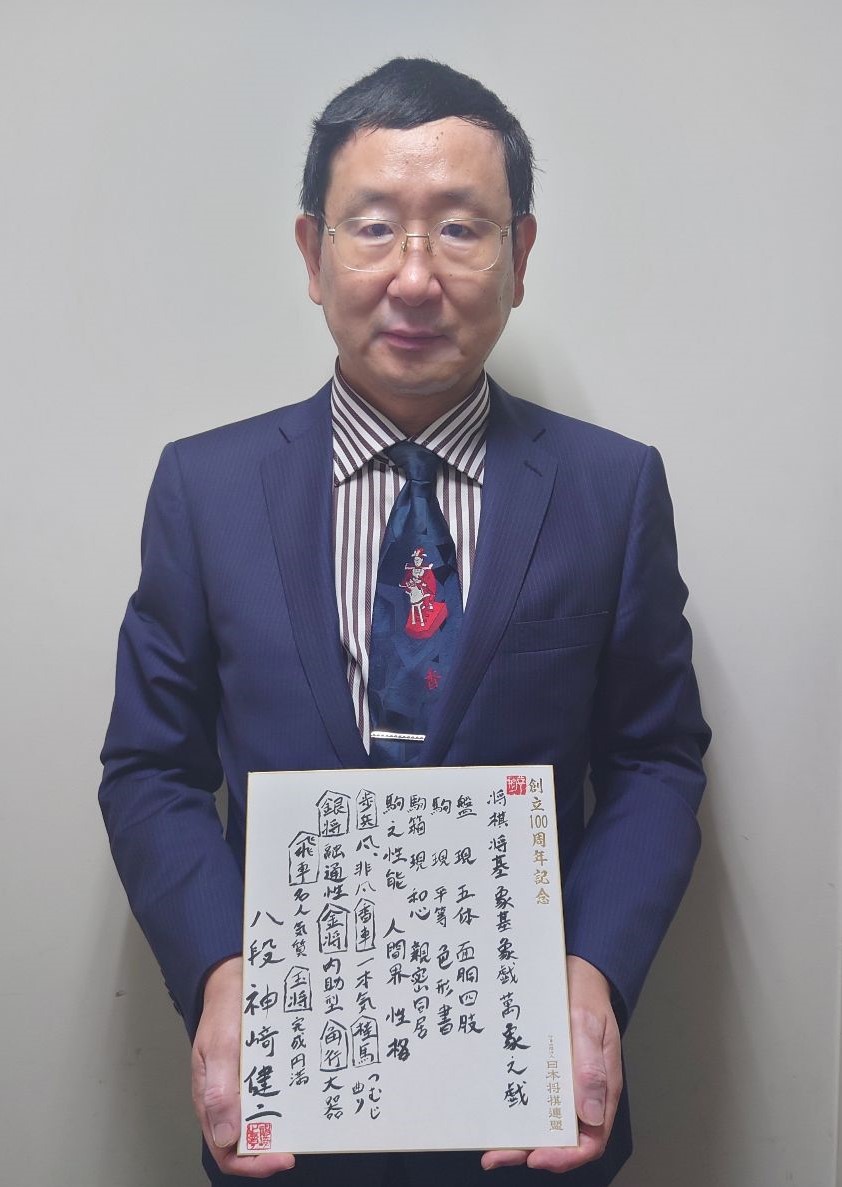 創立100周年記念
日本将棋連盟
将棋将棊象棊象戯萬象之戯
盤 現 五体 面胴四肢
駒 現 平等 色形書
駒箱 現 和心 親密同居
駒之性能 人間界 性格
歩兵 凡、非凡 香車 一本気 桂馬 つむじ曲り
銀将 融通性 金将 内助型 角行 大器
飛車 名人気質 玉将 完成円満
八段 神﨑健二